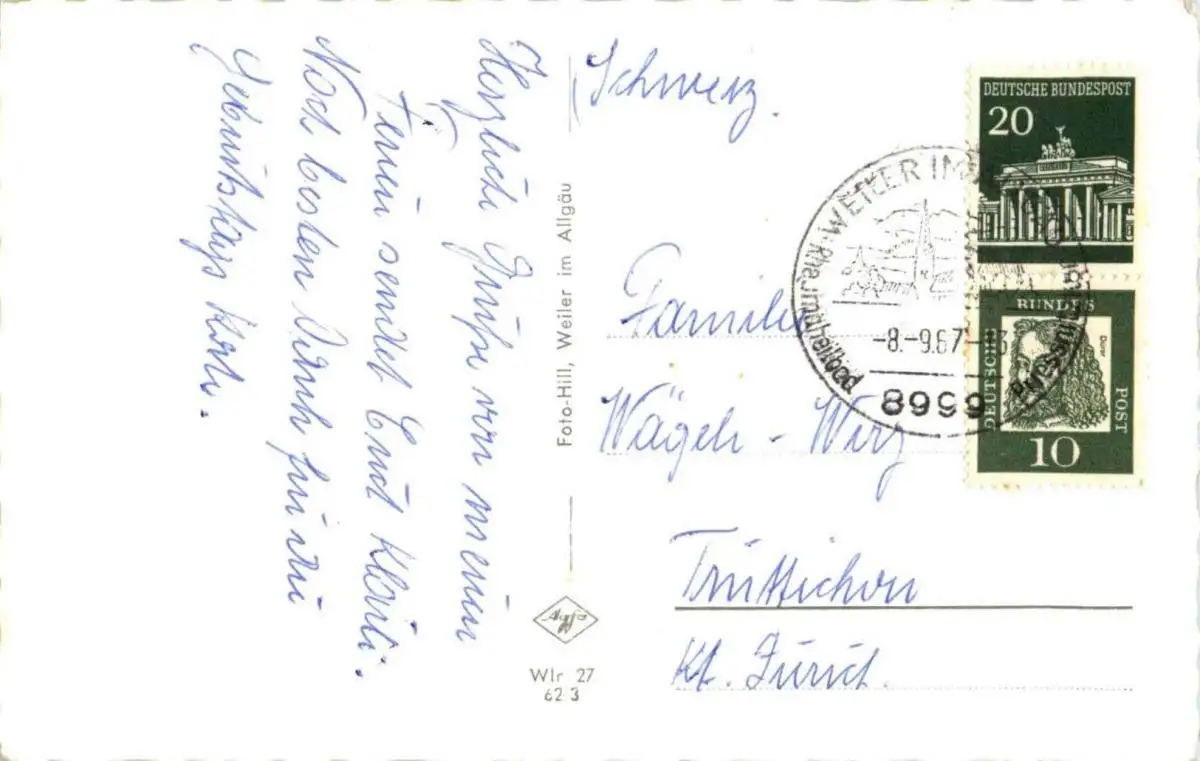 Herzliche Grüße von meinen
Ferien sendet Euch Klärli.
Noch besten Dank für die
Geburtstags Karte.
Foto-Hill, Weiler im Allgäu
Wlr 27
62 3
Schweiz.
Familie
Wägeli - Wirz
Trüttikon
Kt. Zürich.
DEUTSCHE BUNDESPOST
20
WEILER IM
-8.-9.67
8999
DEUTSCHE
BUNDES
POST
Dürer
10